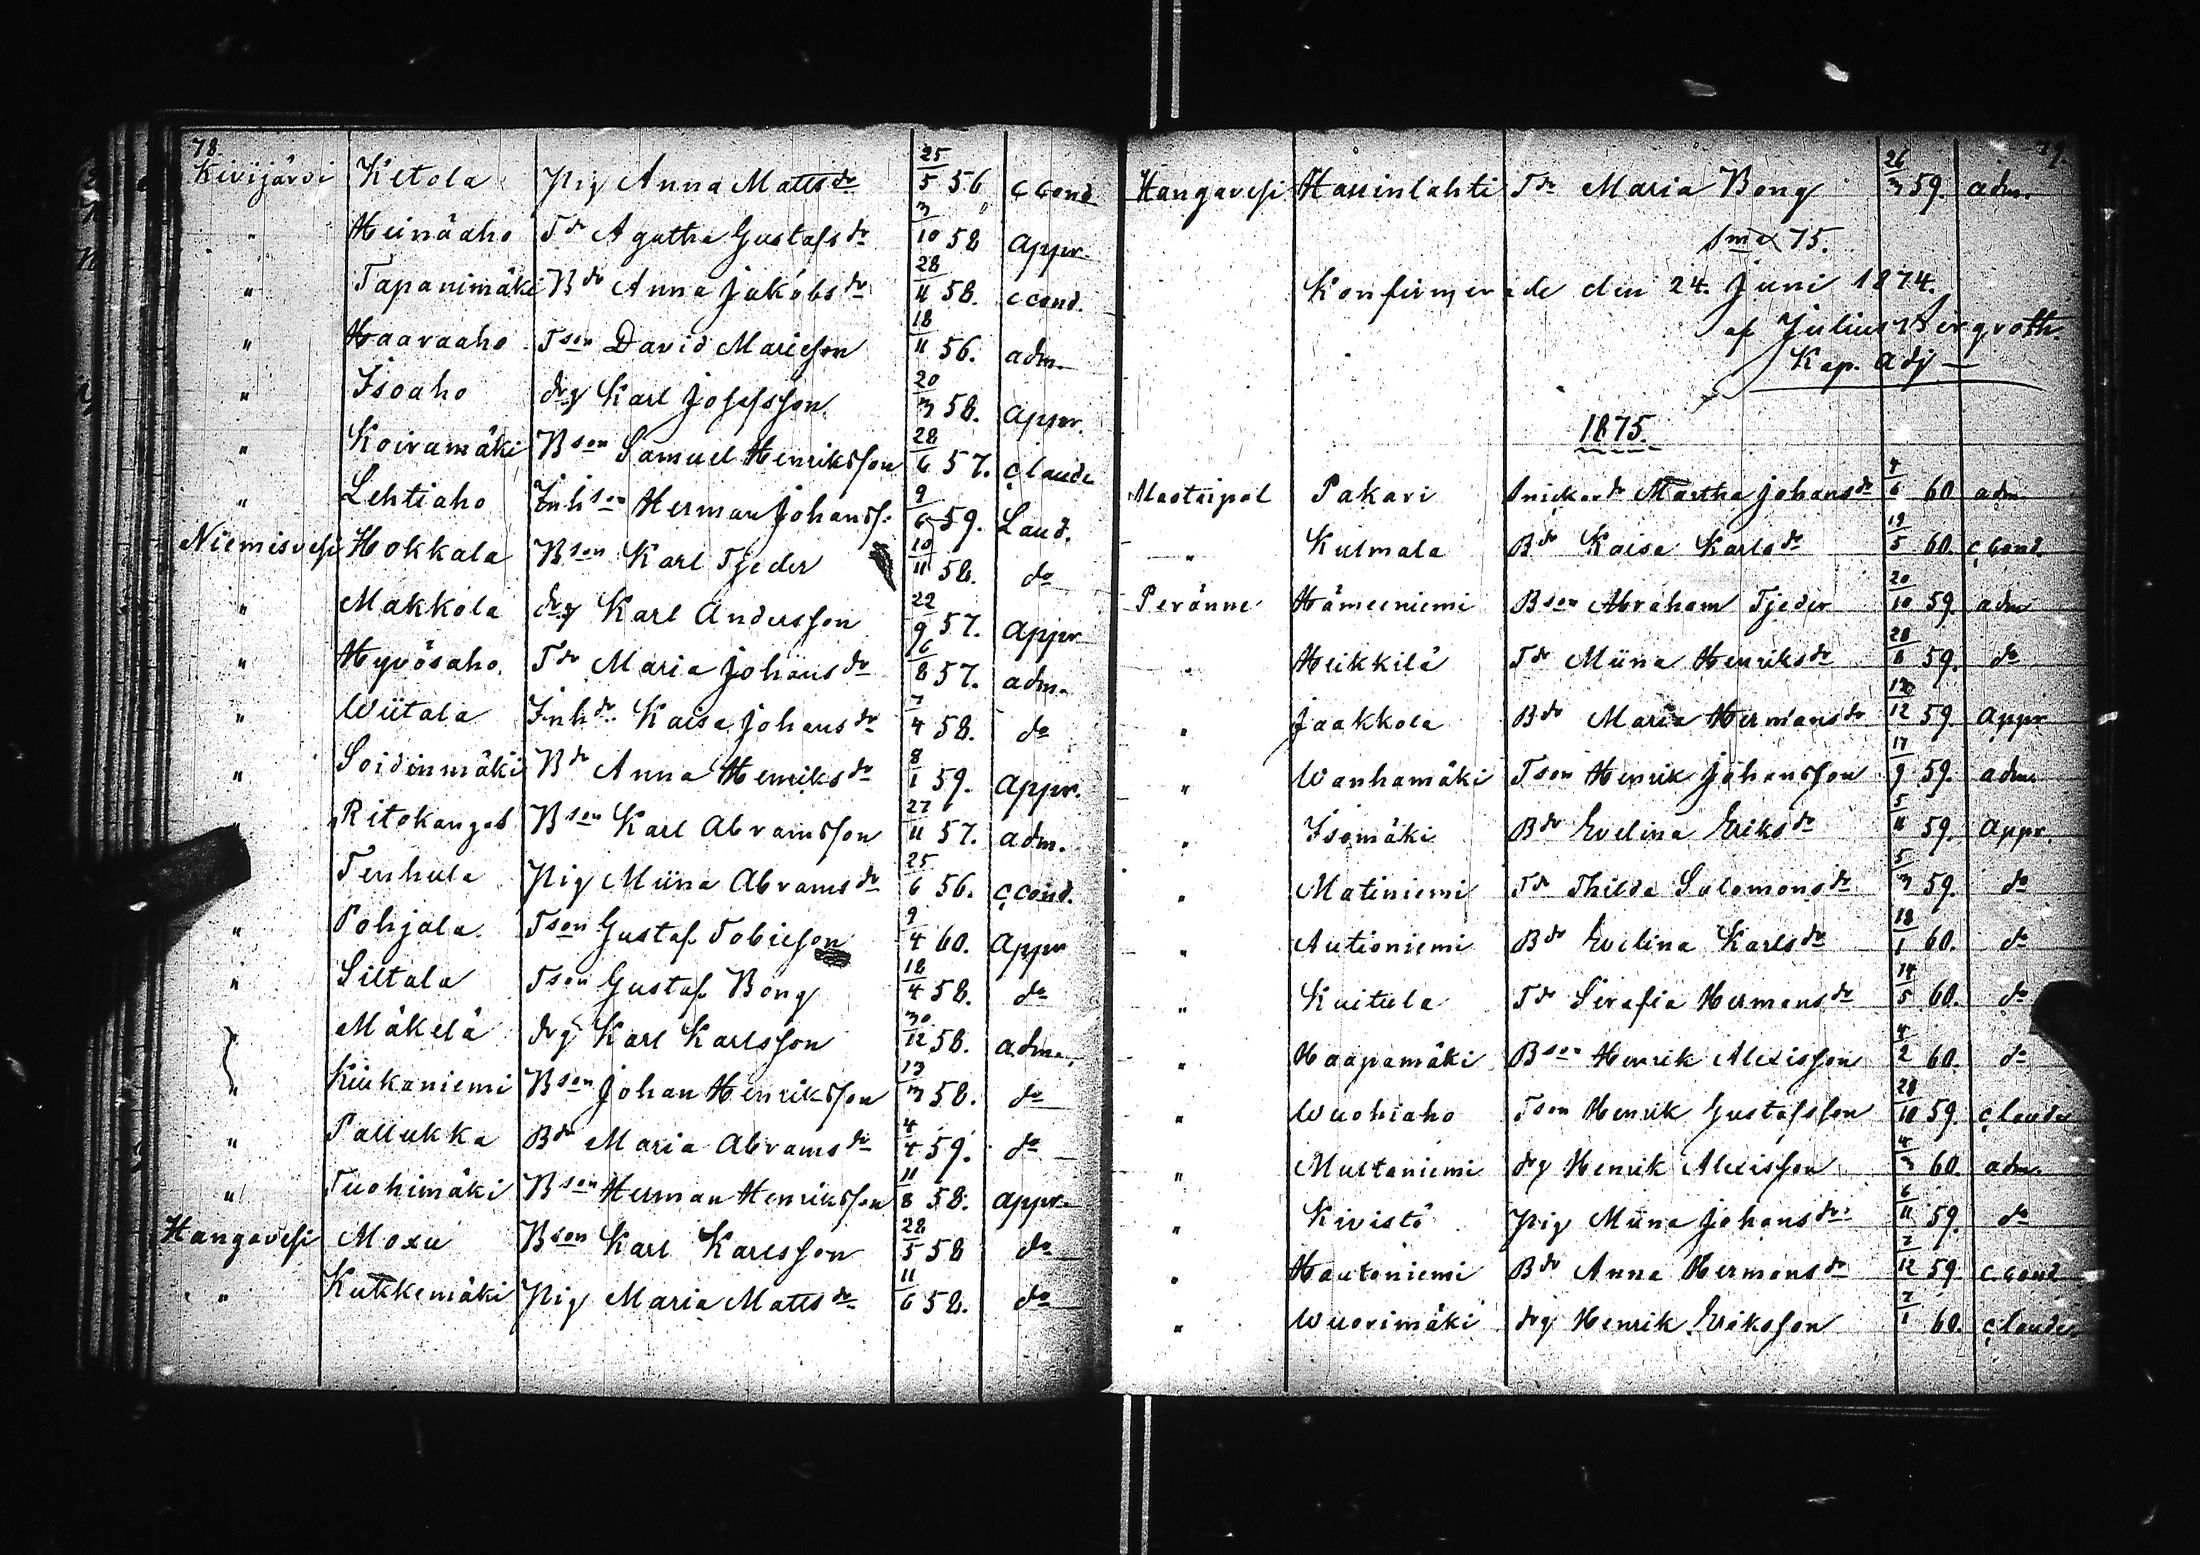 78.
Kivijärvi Ketola Pig Anna Matts do 25/5 56 c cond
" Heinäaho Tdr Agatha Gustafs dr 3/10 58 appr.
" Tapanimäki Bdr Anna Jakobs dr 28/11 58. c cond.
" Haaraaho Tson David Marieson 18/11 56. adm.
" Isoaho drg Karl Josefsson 20/3 58. appr.
" Koiramäki Bson Samuel Henriksson 28/6 57. c laude
" Lehtiaho Inhson Herman Johanss. 9/6 59. Laud.
Niemisvesi Hokkala Bson Karl Tjeder 10/11 58. do
" Makkola drg Karl Andersson 22/9 57. appr
" Hyvösaho. Tdr Maria Johans dr 6/8 57. adm.
" Wiitala Inhdr Kaisa Johans dr 7/4 58. do
" Soidinmäki Bdr Anna Henriks dr 8/1 59. appr.
" Ritokangas Bson Karl Abramsson 27/11 57. adm.
Tenhula Pig Miina Abrams dr 25/6 56. c cond.
" Pohjola Tson Gustaf Tobieson 9/4 60. appr
" Siltala Tson Gustaf Bong 18/4 58. do
" Mäkelä drg Karl Karlsson 30/12 58. adm.
" Kiukaniemi Bson Johan Henriksson 13/3 58. do
" Pallukka Bdr Maria Abrams dr 4/4 59. do
" Tuohimäki Bson Herman Henriksson 11/8 58. appr.
Hangavesi Moxu Bson Karl Karlsson 28/5 58 do
" Kukkemäki Pig Maria Matts dr 11/6 58. do
79.
Hangavesi Harrinlahti Tdr Maria Bong 26/3 59. adm.
Sma 75.
Konfirmerade den 24. Juni 1874.
af Julius Bergroth.
Kap. Adj
1875.
Pakari Snickardr Martha Johans dr 4/6 60 adm.
" Kulmala Bdr Kaisa Karls dr 19/5 60. c cond.
Peränne Hämeeniemi Bson Abraham Tjeder 20/10 59. adm
" Heikkilä Tdr Miina Henriks dr 28/8 59. do
" Jaakkola Bdr Maria Hermans dr 12/12 59. appr
" Wanhamäki Tson Henrik Johansson 17/9 59. adm.
" Isomäki Bdr Evelina Eriks dr 5/11 59. appr.
" Matiniemi Tdr Thilda Salomons dr 5/3 59. do
" Autioniemi Bdr Evelina Karls dr 18/1 60. do
" Kuitula Tdr Serafia Hermans dr 14/5 60. do
" Haapamäki Bson Henrik Alexisson 4/2 60. do
" Wuohiaho Tson Henrik Gustafsson 28/10 59. c laude
" Multaniemi drg Henrik Alexisson 4/3 60. adm.
" Kivistö Pig Miina Johans dr 6/11 59. do
" Hautaniemi Bdr Anna Hermans dr 2/12 59. c cond
" Wuorimäki drg Henrik Eriksson 2/1 60. c laude.